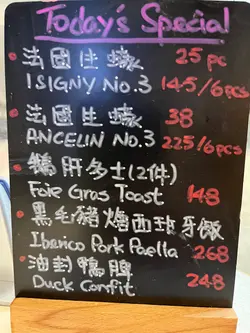 Today's Special
法國生蠔 25 pc
ISIGNY NO.3 145/6pcs
法國生蠔 38
ANCELIN NO.3 225/6pcs
鵝肝多士(2件)
Foie Gras Toast 148
黑毛豬燴西班牙飯
Iberico Pork Paella 268
油封鴨脾
Duck Confit 248